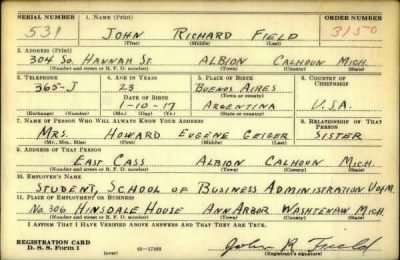 SERIAL NUMBER 1. NAME (Print) ORDER NUMBER
531 JOHN RICHARD FIELD 3150
(First) (Middle) (Last)
2. ADDRESS (Print)
304 SO. HANNAH ST. ALBION CALHOUN MICH.
(Number and street or R. F. D. number) (Town) (County) (State)
3. TELEPHONE 4. AGE IN YEARS 5. PLACE OF BIRTH 6. COUNTRY OF CITIZENSHIP
365-J 23 BUENOS AIRES
DATE OF BIRTH (Town or county)
1-10-17 ARGENTINA U.S.A.
(Exchange) (Number) (Mo.) (Day) (Yr.) (State or country)
7. NAME OF PERSON WHO WILL ALWAYS KNOW YOUR ADDRESS 8. RELATIONSHIP OF THAT PERSON
MRS. HOWARD EUGENE GEIGER SISTER
(Mr., Mrs., Miss) (First) (Middle) (Last)
9. ADDRESS OF THAT PERSON
EAST CASS ALBION CALHOUN MICH.
(Number and street or R. F. D. number) (Town) (County) (State)
10. EMPLOYER'S NAME
STUDENT, SCHOOL OF BUSINESS ADMINISTRATION U OF M.
11. PLACE OF EMPLOYMENT OR BUSINESS
NO. 306 HINSDALE HOUSE ANN ARBOR WASHTENAW MICH.
(Number and street or R. F. D. number) (Town) (County) (State)
I AFFIRM THAT I HAVE VERIFIED ABOVE ANSWERS AND THAT THEY ARE TRUE.
REGISTRATION CARD
D. S. S. Form 1 (over) 16—17105 John R. Field
(Registrant's signature)